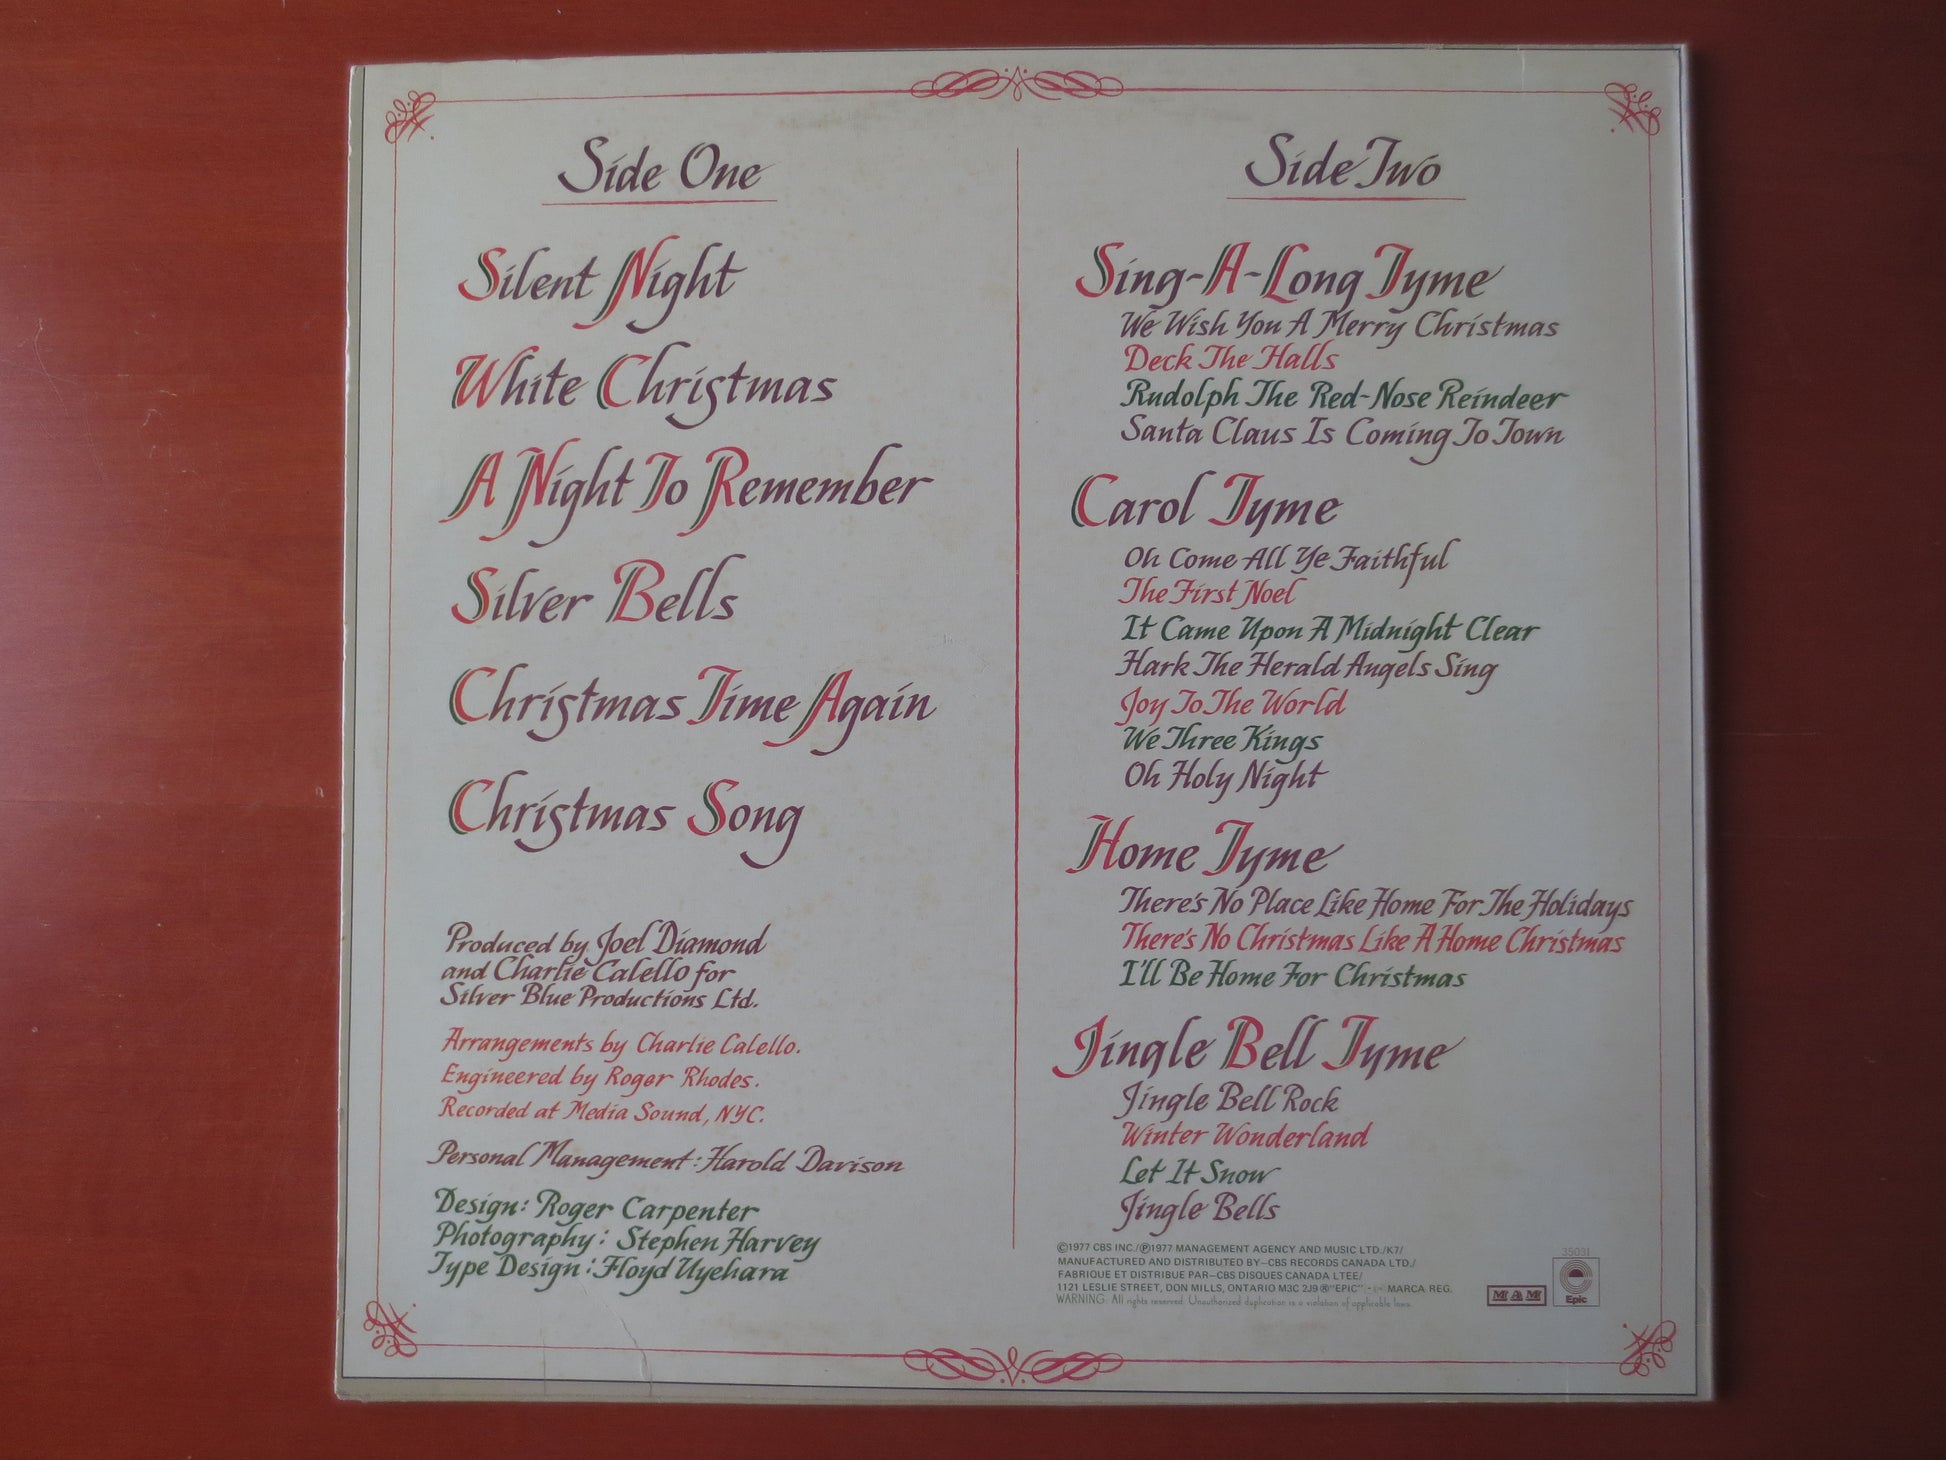 Side One
Silent Night
White Christmas
A Night To Remember
Silver Bells
Christmas Time Again
Christmas Song
Produced by Joel Diamond
and Charlie Calello for
Silver Blue Productions Ltd.
Arrangements by Charlie Calello.
Engineered by Roger Rhodes.
Recorded at Media Sound, NYC.
Personal Management: Harold Davison
Design: Roger Carpenter
Photography: Stephen Harvey
Type Design: Floyd Uyehara
Side Two
Sing-A-Long Tyme
We Wish You A Merry Christmas
Deck The Halls
Rudolph The Red-Nose Reindeer
Santa Claus Is Coming To Town
Carol Tyme
Oh Come All Ye Faithful
The First Noel
It Came Upon A Midnight Clear
Hark The Herald Angels Sing
Joy To The World
We Three Kings
Oh Holy Night
Home Tyme
There's No Place Like Home For The Holidays
There's No Christmas Like A Home Christmas
I'll Be Home For Christmas
Jingle Bell Tyme
Jingle Bell Rock
Winter Wonderland
Let It Snow
Jingle Bells
©1977 CBS INC./℗1977 MANAGEMENT AGENCY AND MUSIC LTD./K7/
MANUFACTURED AND DISTRIBUTED BY—CBS RECORDS CANADA LTD./
FABRIQUE ET DISTRIBUE PAR—CBS DISQUES CANADA LTEE/
1121 LESLIE STREET, DON MILLS, ONTARIO M3C 2J9 ® "EPIC" MARCA REG.
WARNING: All rights reserved. Unauthorized duplication is a violation of applicable laws.
MAM
35031
Epic